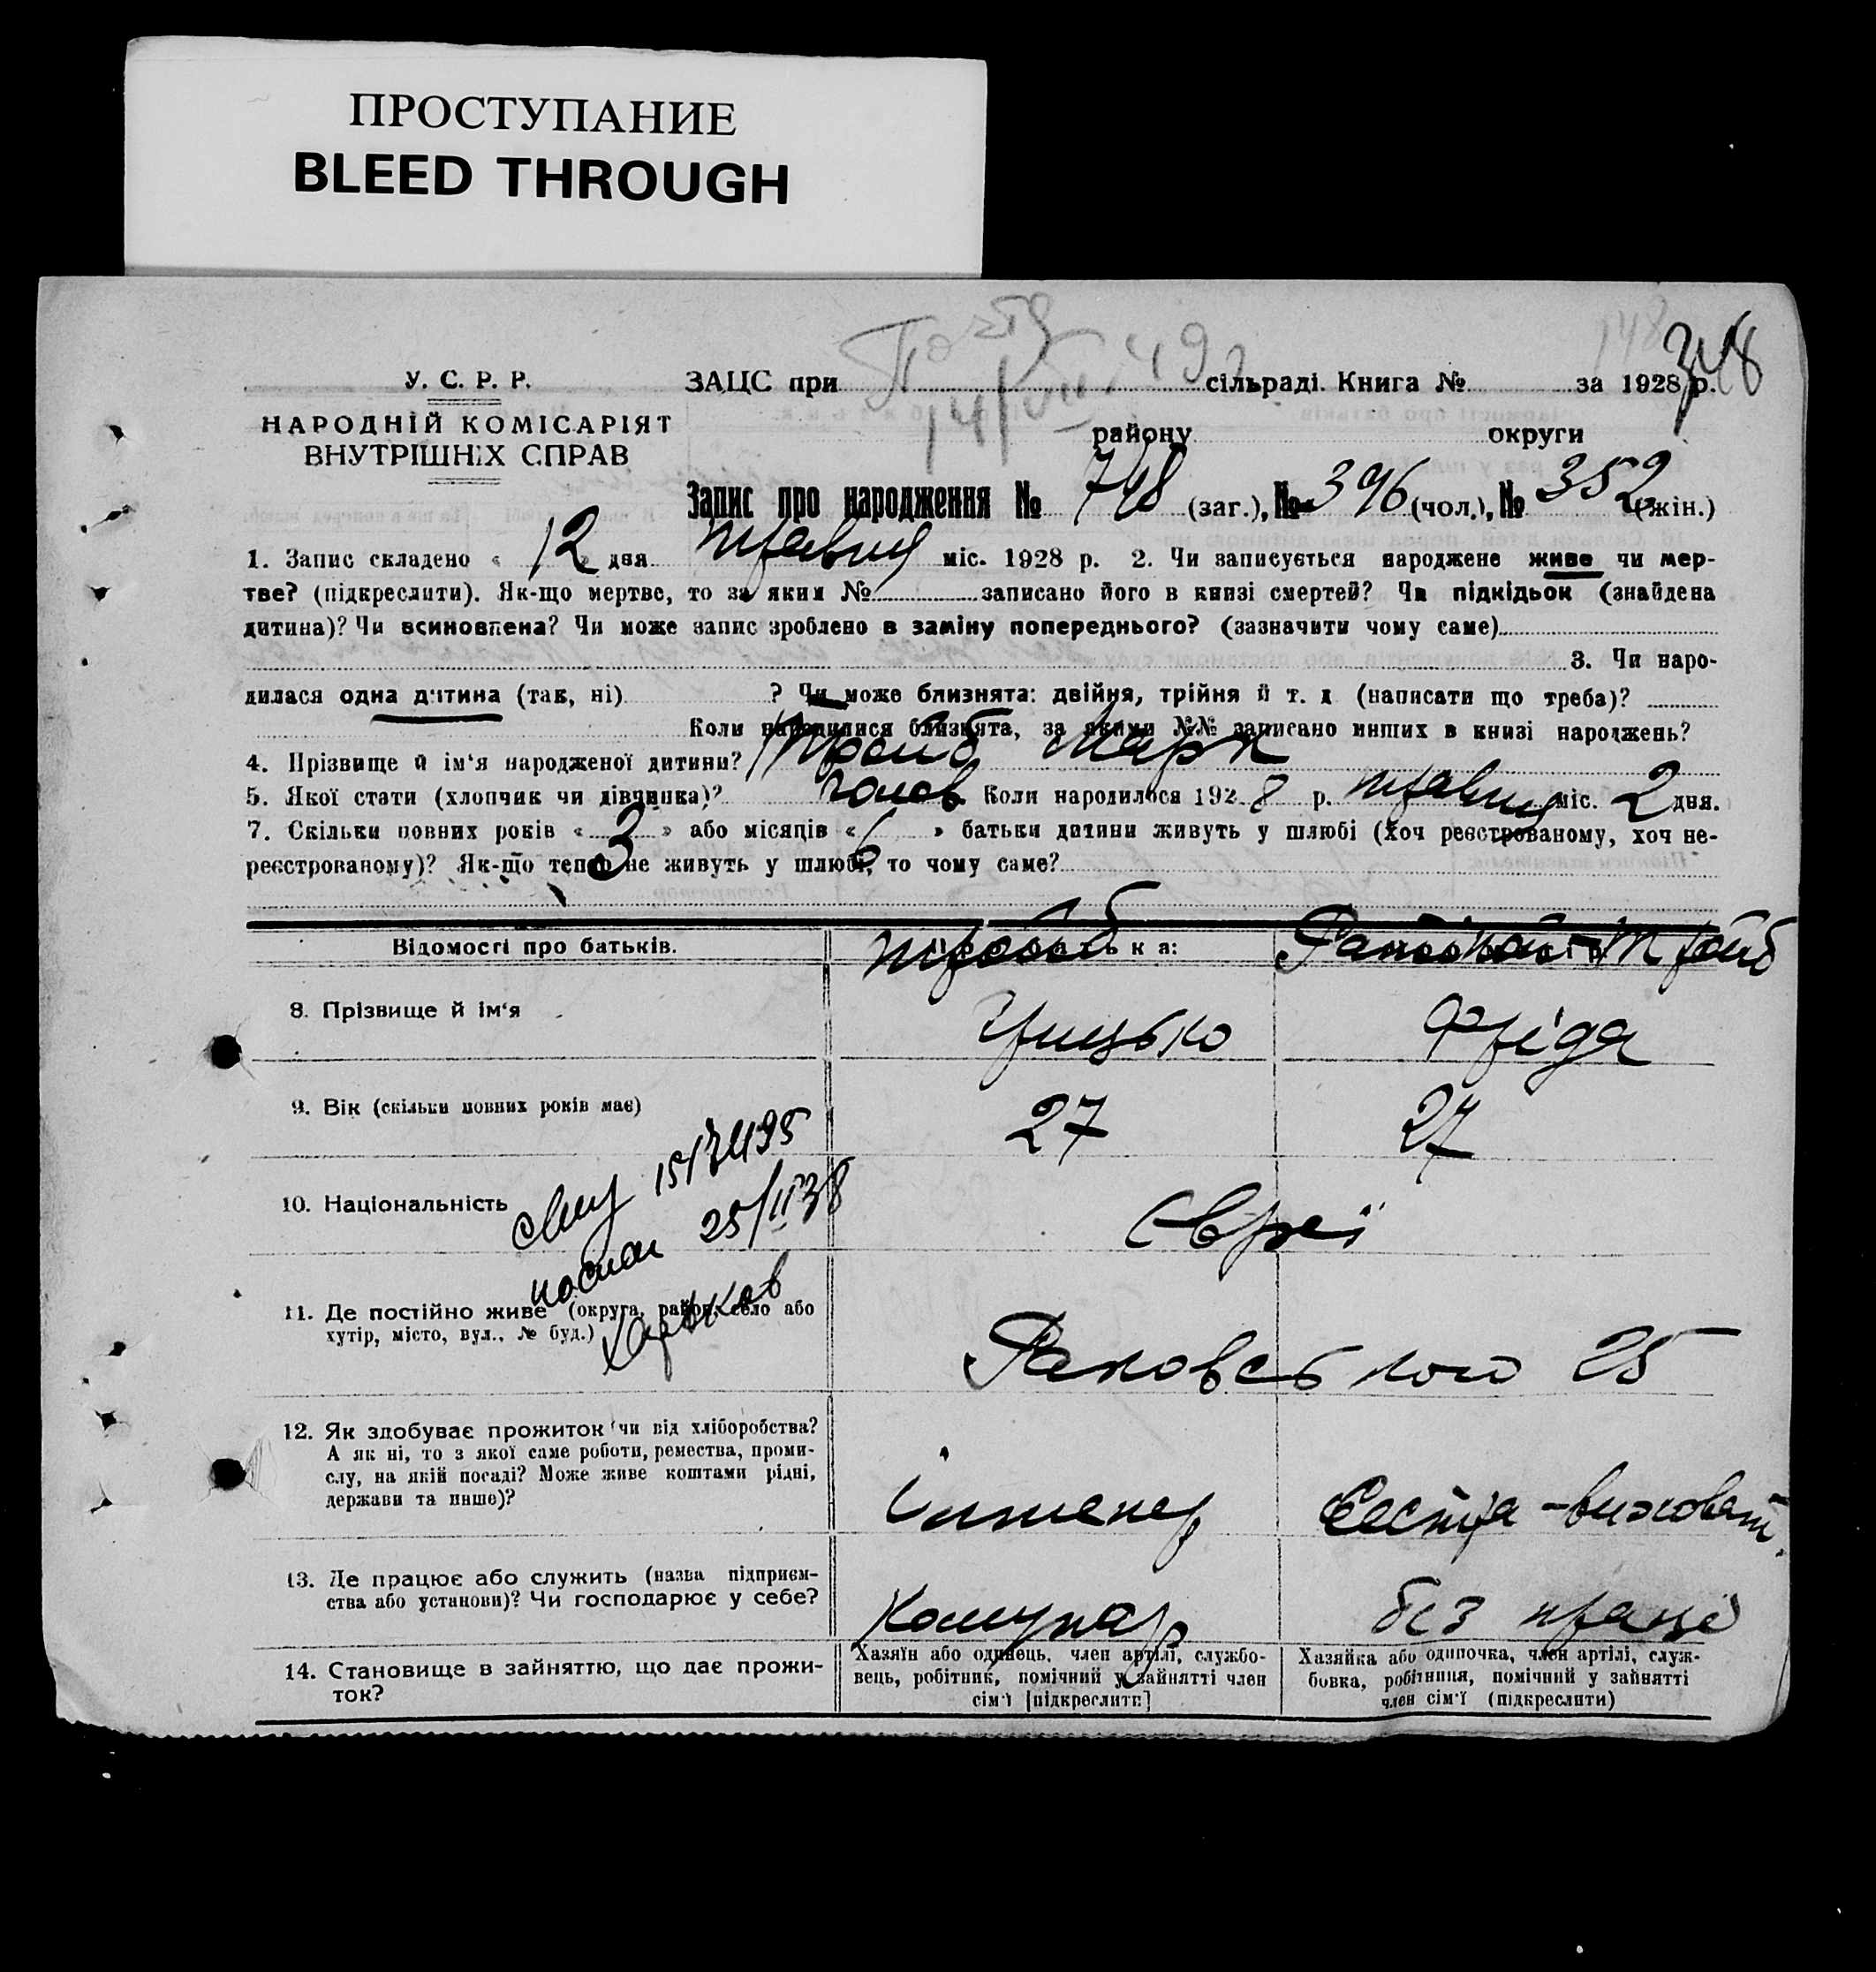 ПРОСТУПАНИЕ
BLEED THROUGH
148
348
14/VII 49
У. С. Р. Р.
НАРОДНІЙ КОМІСАРІЯТ
ВНУТРІШНІХ СПРАВ
ЗАЦС при сільраді. Книга № за 1928 р.
району округи
Запис про народження № 748 (заг.), № 396 (чол.), № 352 (жін.)
1. Запис складено « 12 » дня травня міс. 1928 р. 2. Чи записується народжене живе чи мер-
тве? (підкреслити). Як-що мертве, то за яким № записано його в книзі смертей? Чи підкідьок (знайдена
дитина)? Чи всиновлена? Чи може запис зроблено в заміну попереднього? (зазначити чому саме)
3. Чи наро-
дилася одна дитина (так, ні) ? Чи може близнята: двійня, трійня й т. д (написати що треба)?
Коли народилися близнята, за якими №№ записано инших в книзі народжень?
4. Прізвище й ім‘я народженої дитини? Марк
5. Якої стати (хлопчик чи дівчинка)? чолов Коли народилося 1928 р. травня міс. 2 дня.
7. Скільки повних років « 3 » або місяців « 6 » батьки дитини живуть у шлюбі (хоч реєстрованому, хоч не-
реєстрованому)? Як-що тепер не живуть у шлюбі, то чому саме?
Відомості про батьків.
8. Прізвище й ім‘я Грицько Фріда
9. Вік (скільки повних років має) 27 27
10. Національність Євреї
25/II 38
Харьков
11. Де постійно живе (округа, район, село або
хутір, місто, вул., № буд.) Раковського 25
12. Як здобуває прожиток (чи від хліборобства?
А як ні, то з якої саме роботи, ремества, проми-
слу, на якій посаді? Може живе коштами рідні,
держави та инше)? інженер Сестра-виховат.
13. Де працює або служить (назва підприєм-
ства або установи)? Чи господарює у себе? Комунар без праці
14. Становище в зайняттю, що дає прожи-
ток?
Хазяїн або одинець, член артілі, службо-
вець, робітник, помічний у зайнятті член
сім'ї [підкреслити]
Хазяйка або одиночка, член артілі, служ-
бовка, робітниця, помічний у зайнятті
член сім'ї (підкреслити)